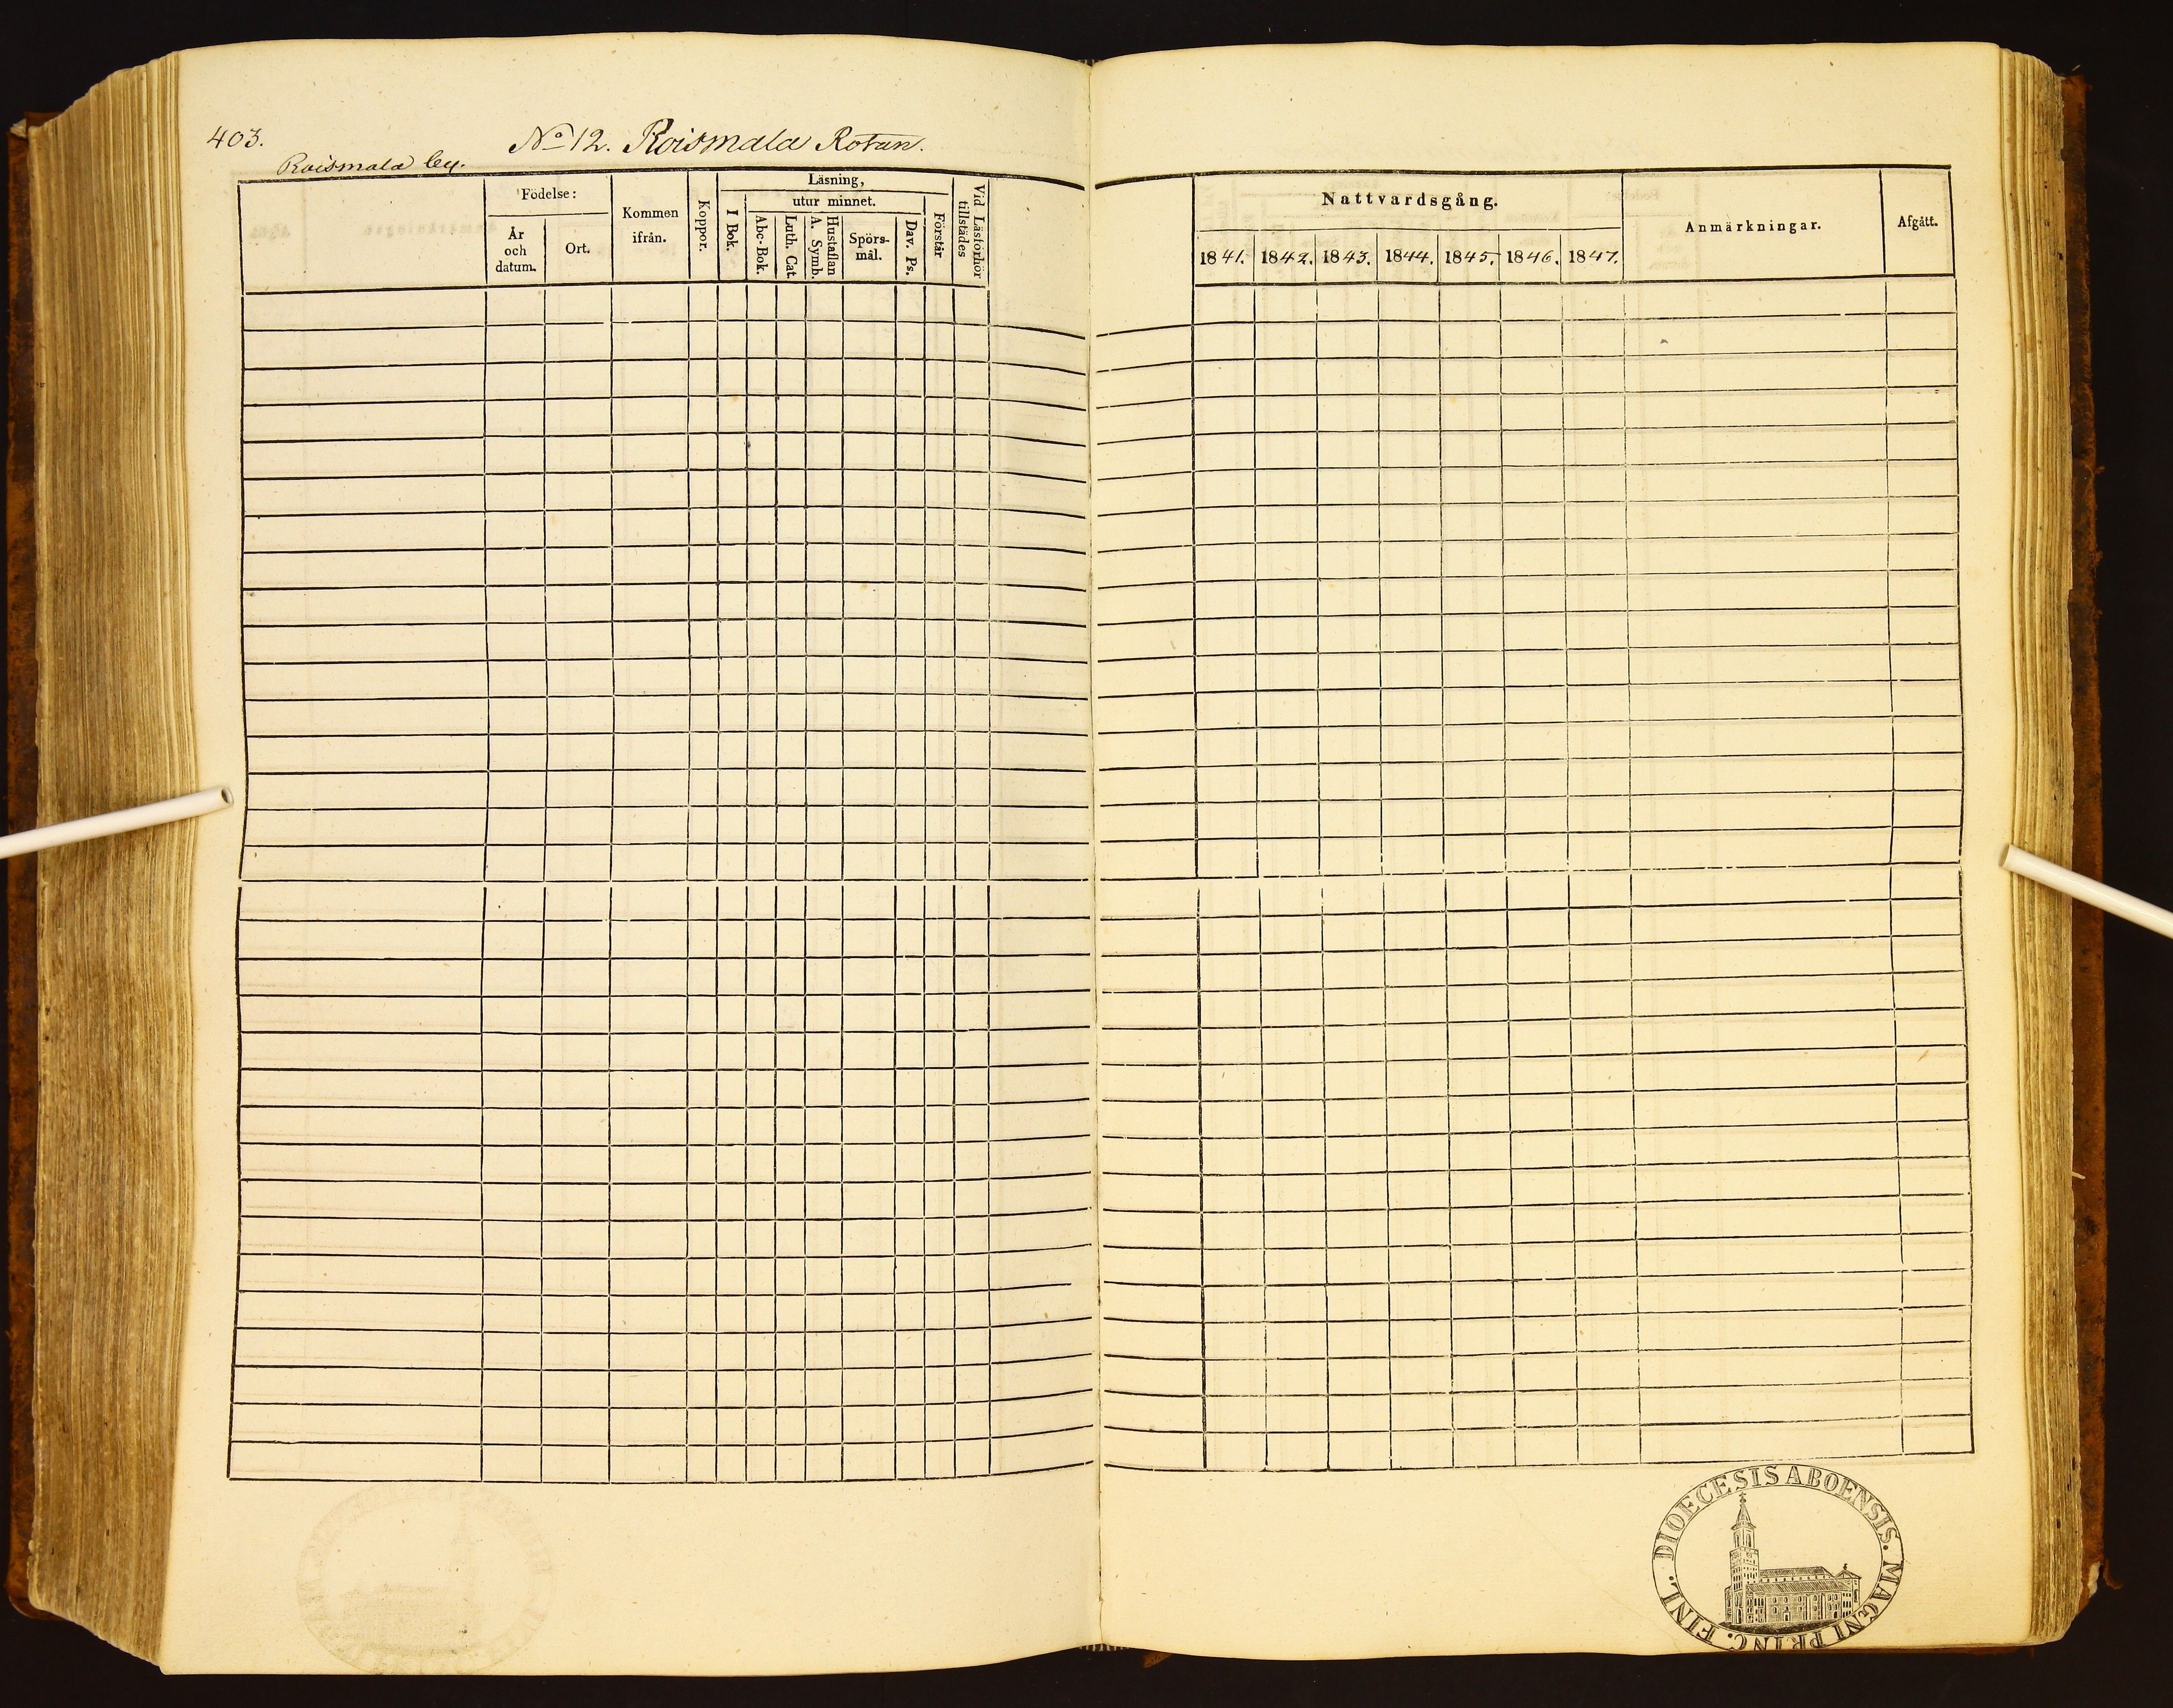 403.
No 12. Roismala Rotan.
Roismala by.
Födelse:
År och datum.
Ort.
Kommen ifrån.
Koppor.
Läsning,
I Bok.
utur minnet.
Abc-Bok.
Luth. Cat.
Hustaflan A. Symb.
Spörsmål.
Dav. Ps.
Förstår
Vid Läsförhör tillstädes
Nattvardsgång.
1841. 1842. 1843. 1844. 1845. 1846. 1847.
Anmärkningar.
Afgått.
DIOECESIS ABOENSIS. MAGNI PRINC. FINL.